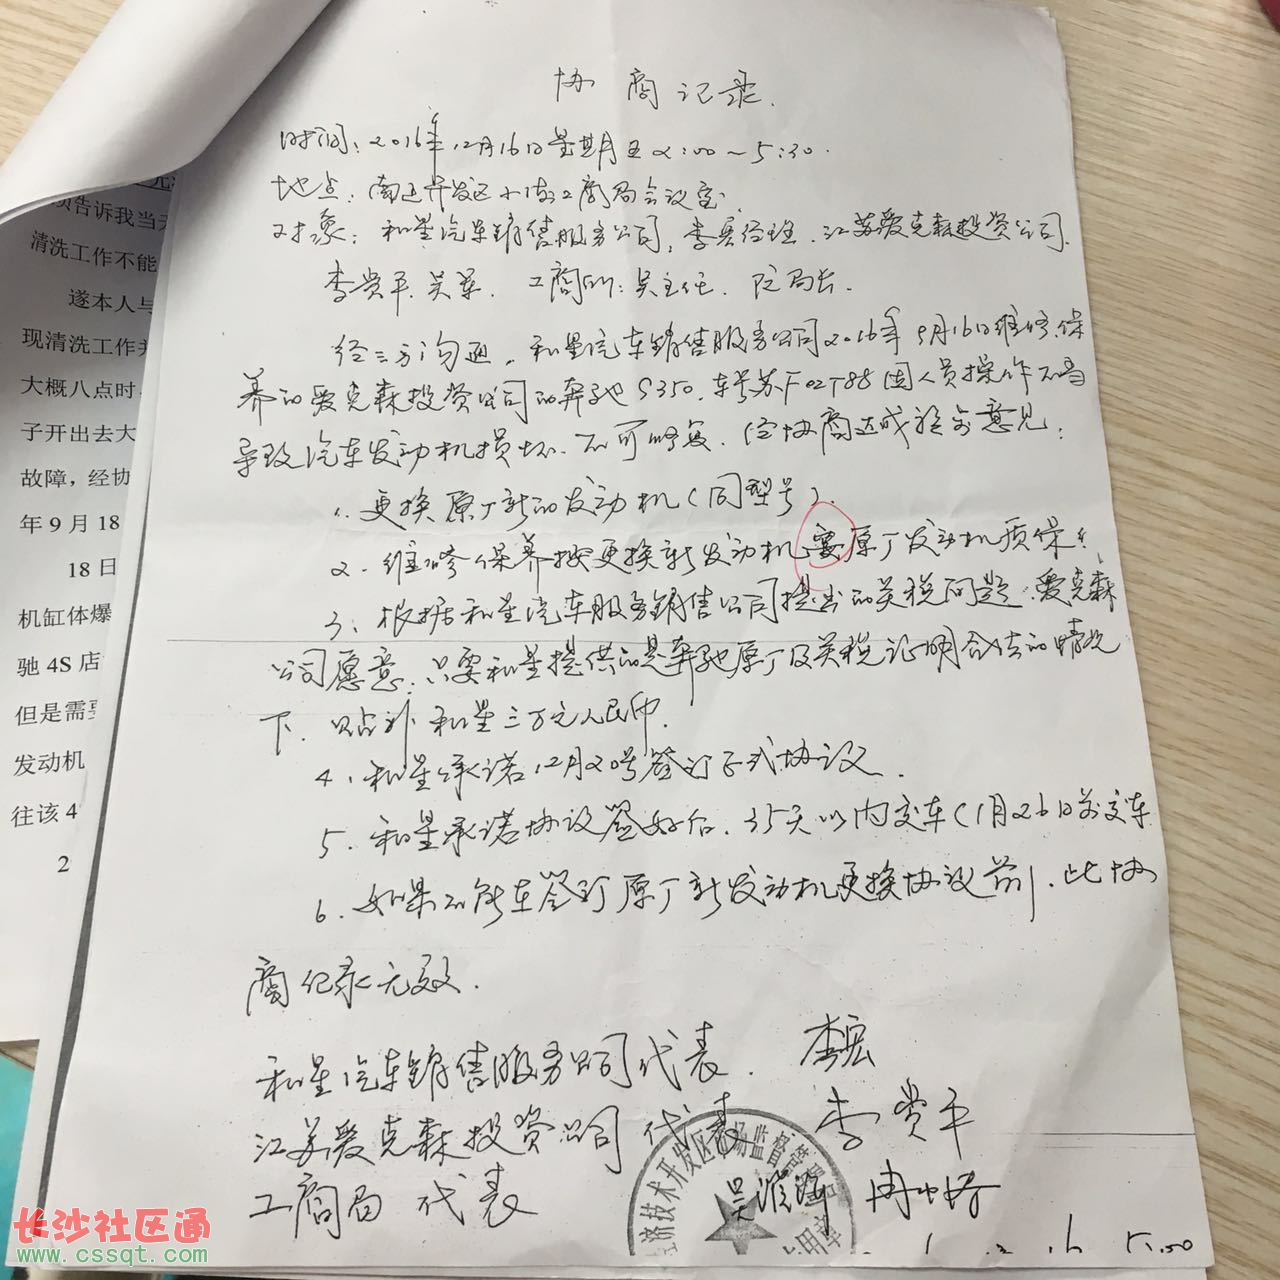 协商记录.
时间:2016年12月16日星期五2:00~5:30.
地点:南通开发区小海工商局会议室.
对象:和星汽车销售服务公司,李宏经理.江苏爱克森投资公司.
李赏平.吴军.工商所:吴主任.阮局长.
经三方沟通,和星汽车销售服务公司2016年9月16日维修.保
养的爱克森投资公司的奔驰S350.车号苏F02T88因人员操作不当
导致汽车发动机损坏.不可修复.经协商达成意见:
1.更换原厂新的发动机(同型号).
2.维修保养按更换新发动机,要原厂发动机质保.
3、根据和星汽车服务销售公司提出的关税问题.爱克森
公司愿意,只要和星提供的是奔驰原厂及关税证明合法的情况
下.贴补和星三万元人民币.
4、和星承诺12月20号签订正式协议.
5.和星承诺协议签好后.35天以内交车(1月26日前交车
6.如果不能签订原厂新发动机更换协议前,此协
商记录无效.
和星汽车销售服务公司代表. 李宏
江苏爱克森投资公司 代表 李赏平
工商局 代表
经济技术开发区市场监督管理局
专用章
元
须告诉我当天
清洗工作不能
遂本人与
现清洗工作并
大概八点时
子开出去大
故障,经协
年9月18
18日
机缸体爆
驰4S店
但是需要
发动机
往该4
2
长沙社区通
www.cssqt.com